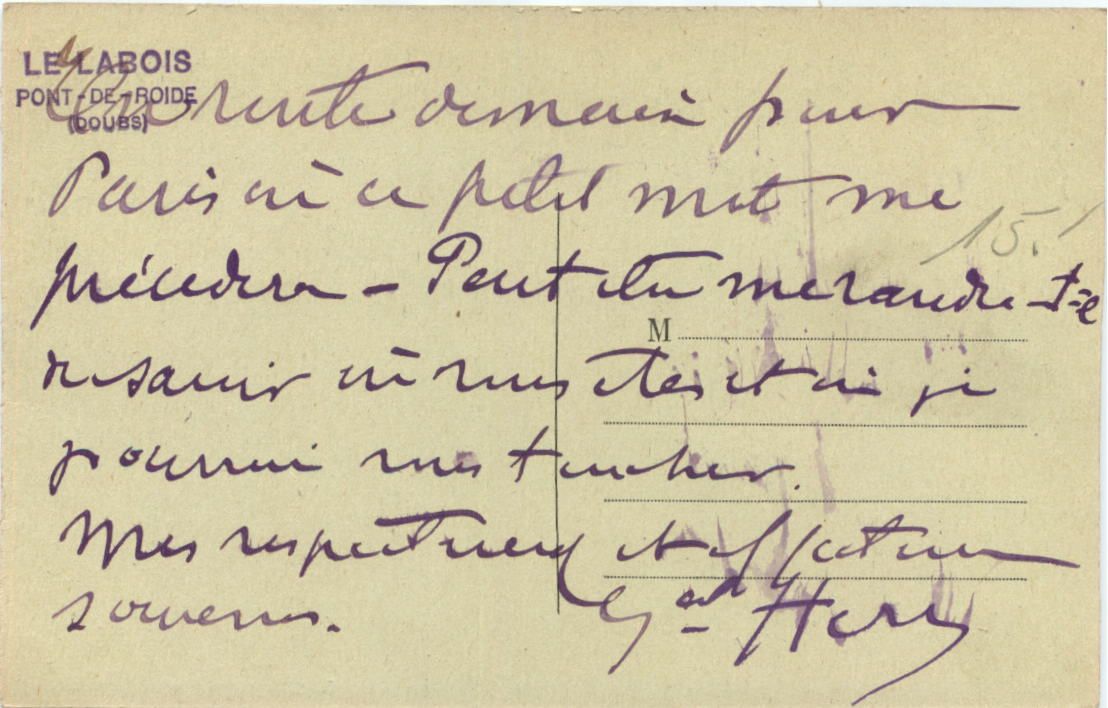 LE LABOIS
PONT-DE-ROIDE
(DOUBS)
route demain pour
Paris où ce petit mot me
15.
précédera - Peut être me
M
de savoir où vous êtes et où je
pourrai vous toucher.
Mes respectueux et affectueux
souvenirs.
Gal